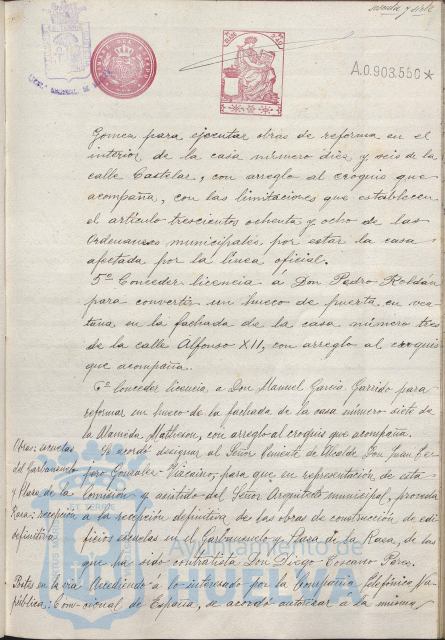 sesenta y siete
A.0.903.550*
Gomea para ejecutar obras de reforma en el
interior de la casa número diez y seis de la
calle Castelar, con arreglo al croquis que
acompaña, con las limitaciones que establecen
el artículo trescientos ochenta y ocho de las
Ordenanzas municipales, por estar la casa
afectada por la línea oficial.
5º Conceder licencia á Don Pedro Roldán
para convertir un hueco de puerta en ven
tana en la fachada de la casa número tres
de la calle Alfonso XII, con arreglo al croquis
que acompaña.
6º Conceder licencia a Don Manuel García Garrido para
reformar un hueco de la fachada de la casa número siete de
la Alameda Matheson, con arreglo al croquis que acompaña.
Obras: escuelas
del Garbanzuelo
y Plaza de la
Raza: recepción
definitiva.
Se acordó designar al Señor Teniente de Alcalde Don Juan
González Vizcaíno, para que en representación de esta
Comisión y asistido del Señor Arquitecto municipal, proceda
a la recepción definitiva de las obras de construcción de edi
ficios escuelas en el Garbanzuelo y Plaza de la Raza, de las
que ha sido contratista Don Diego Pérez.
Postes en la vía
pública:
Accediendo á lo interesado por la Compañía Telefónica Na
cional de España, se acordó autorizar a la misma
Ayuntamiento de
HUELVA